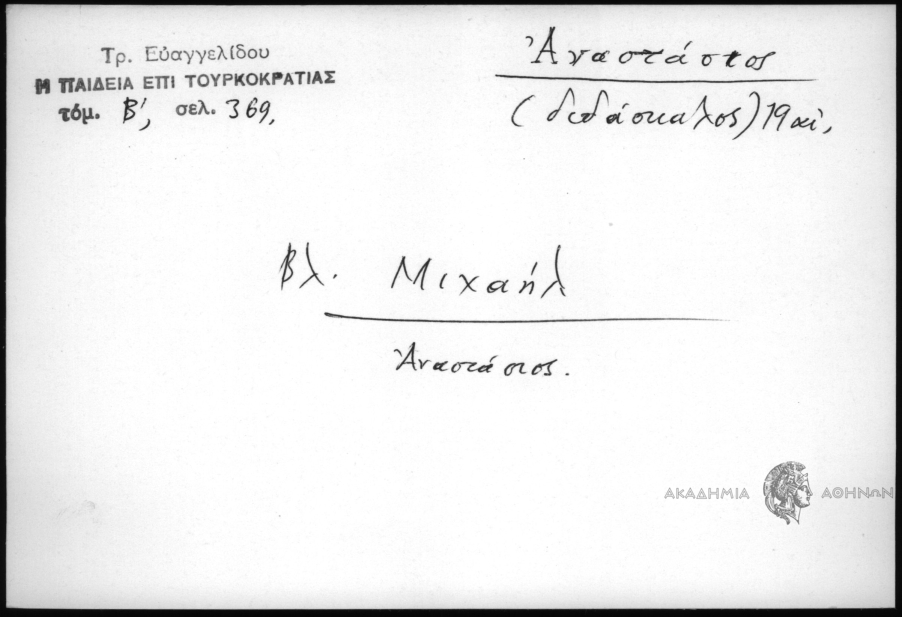 Τρ. Εὐαγγελίδου
Η ΠΑΙΔΕΙΑ ΕΠΙ ΤΟΥΡΚΟΚΡΑΤΙΑΣ
τόμ. Β', σελ. 369,
Ἀναστάσιος
(διδάσκαλος) 19 αἰ,
Βλ. Μιχαήλ
Ἀναστάσιος.
ΑΚΑΔΗΜΙΑ ΑΘΗΝΩΝ